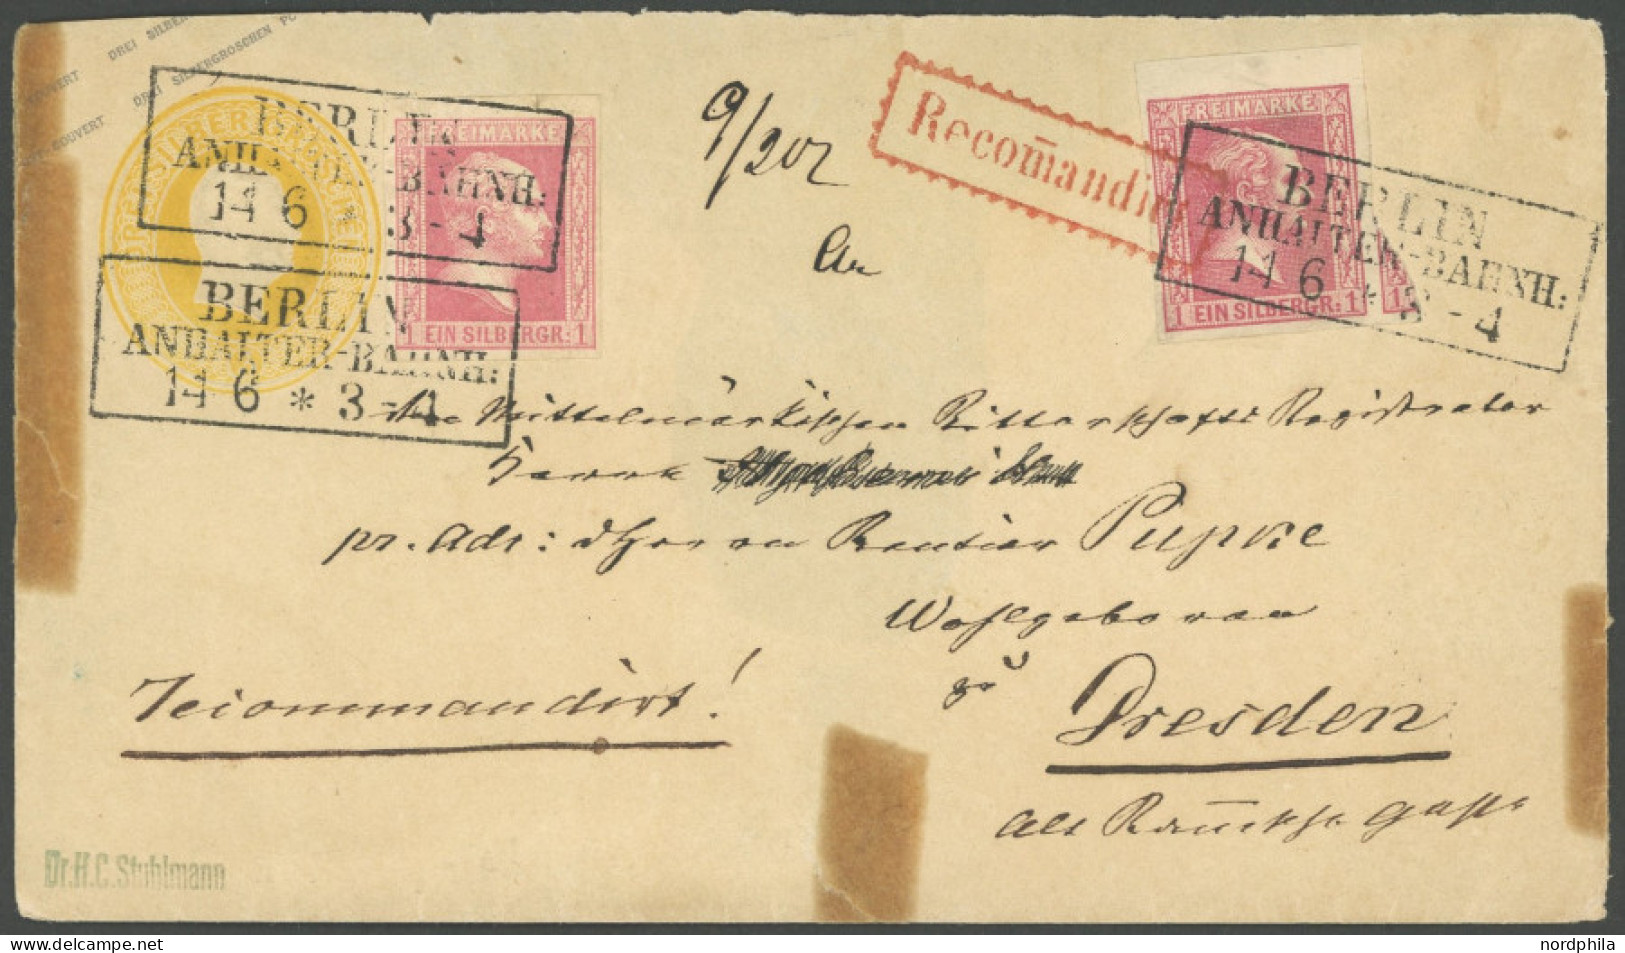 DREI SILBER
COUVERT DREI SILBERGROSCHEN PO
COUVERT
BERLIN
ANHALTER-BAHNH:
14 6 * 3-4
FREIMARKE
1 EIN SILBERGR: 1
BERLIN
ANHALTER-BAHNH:
14 6 * 3-4
9/202
Recom̄andirt
FREIMARKE
1 EIN SILBERGR: 1
1
BERLIN
ANHALTER-BAHNH:
14 6 * 3-4
An
den Mittelmärkischen Ritterschafts Registrator
Herrn
pr. Adr: Herren Rentier Pupke
Wohlgeboren
zu
Dresden
Recommandirt!
Dr.H.C.Stuhlmann
nordphila